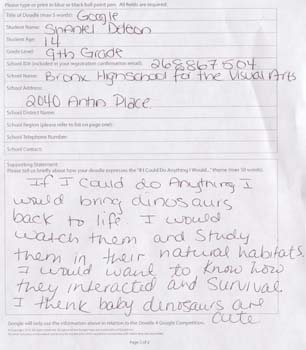 Please type or print in blue or black ball point pen. All fields are required.
Title of Doodle (max 5 words): Google
Student Name: Shaniel Deleon
Student Age: 14
Grade Level: 9th Grade
School ID# (included in your registration confirmation email): 268867504
School Name: Bronx Highschool for the Visual Arts
School Address:
2040 Antin Place
School District Name:
School Region (please refer to list on page one):
School Telephone Number:
School Contact:
Supporting Statement:
Please tell us briefly about how your doodle expresses the "If I Could Do Anything I Would..." theme (max 50 words).
If I Could do Anything I
would bring dinosaurs
back to life I would
watch them and Study
them in their natural habitats.
I would want to know how
they interacted and Survival
I thenk baby dinosaurs are
cute
Google will only use the information above in relation to the Doodle 4 Google Competition.
Page 2 of 2